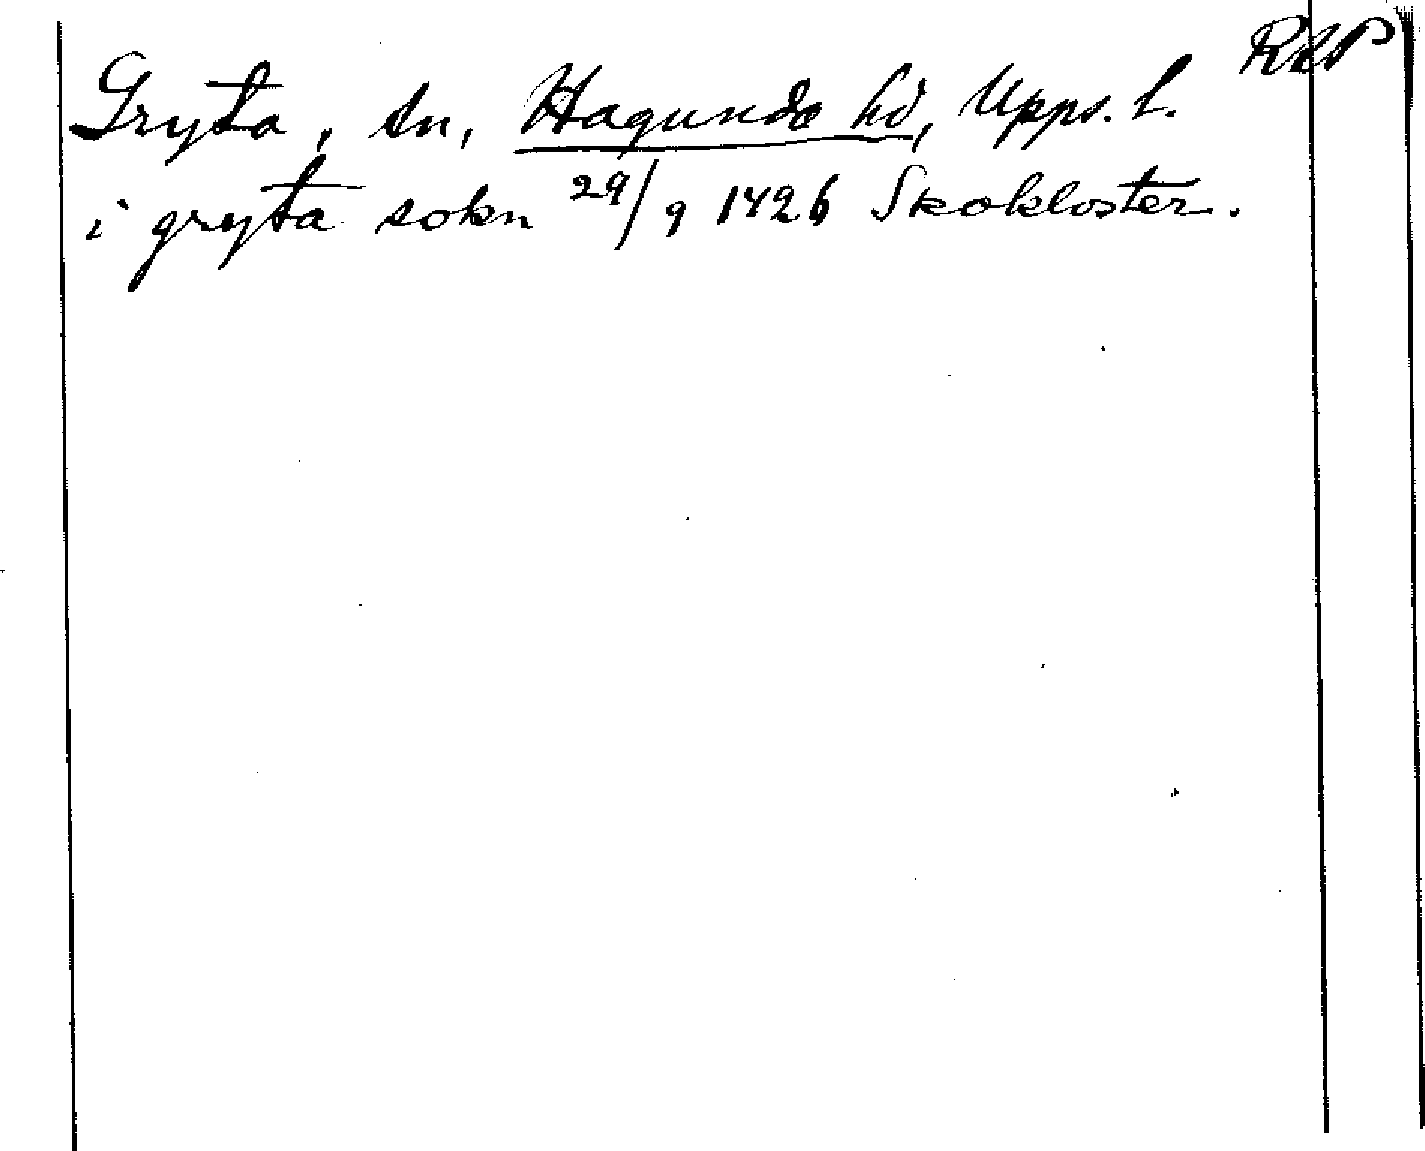 RAP
Gryta, sn, Hagunda hd, Upps. l.
i gryta sokn 29/9 1426 Skokloster.